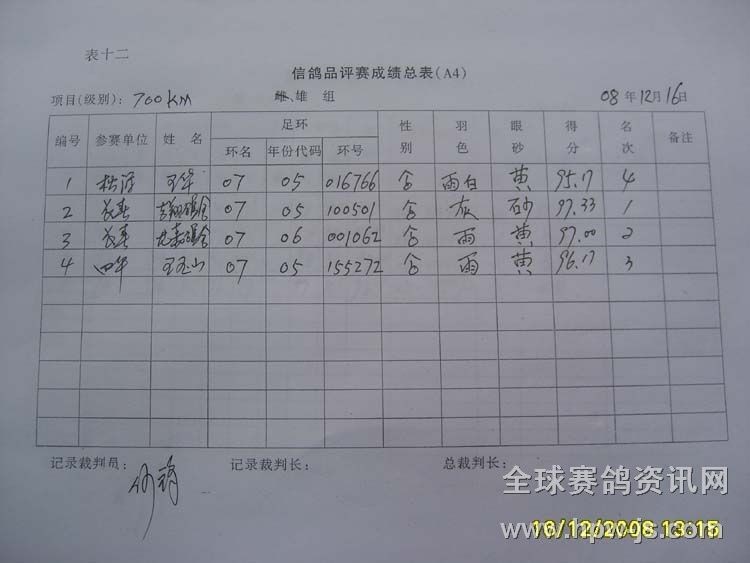 表十二
信鸽品评赛成绩总表(A4)
项目(级别): 700KM 雌、雄 组 08年12月16日
编号 参赛单位 姓 名 足环 性别 羽色 眼砂 得分 名次 备注
环名 年份代码 环号
1 07 05 016766 雨白 黄 95.17 4
2 长春 07 05 100501 灰 砂 97.33 1
3 长春 07 06 001062 雨 黄 97.00 2
4 四平 王玉山 07 05 155272 雨 黄 96.17 3
记录裁判员: 记录裁判长: 总裁判长:
全球赛鸽资讯网
16/12/2008 13:15